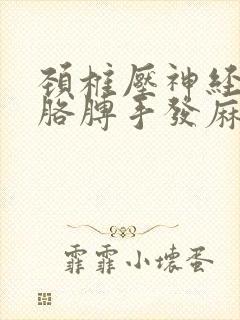 頚椎壓神经
胳脾手發麻
霏霏小壞蛋